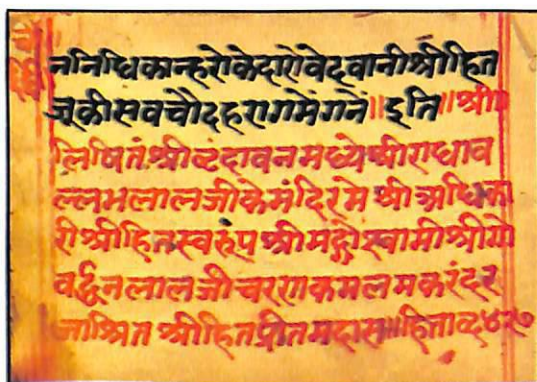 ननिधिकान्हरोकेदारोवेदवानीश्रीहित
जूकीसवचौदहरागमेंगनें॥इति॥श्री॥
लिषितंश्रीव्रंदावनमध्येश्रीराधाव
ल्लभलालजीकेमंदिरमे श्री अधिका
री श्रीहितस्वरुंप श्रीमद्गोस्वामीश्रीगो
वर्द्धनलालजीचरणकमलमकरंदर
जाश्रित श्रीहितप्रीतमदास॥हिताव्द४२७